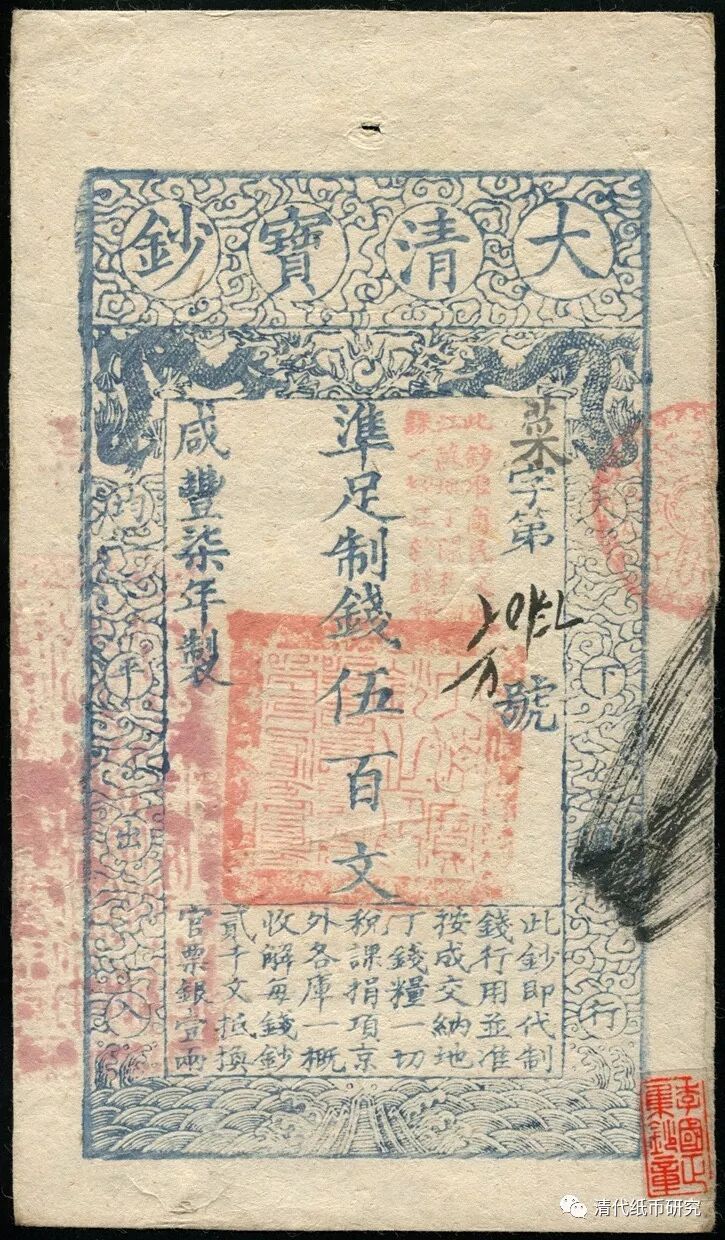 大清寶鈔
天下通行
菜字第號
準足制錢伍百文
咸豐柒年製
均平出入
此鈔即代制
錢行用並准
按成交納地
丁錢糧一切
稅課捐項京
外各庫一概
收解每錢鈔
貳千文抵換
官票銀壹兩
清代纸币研究